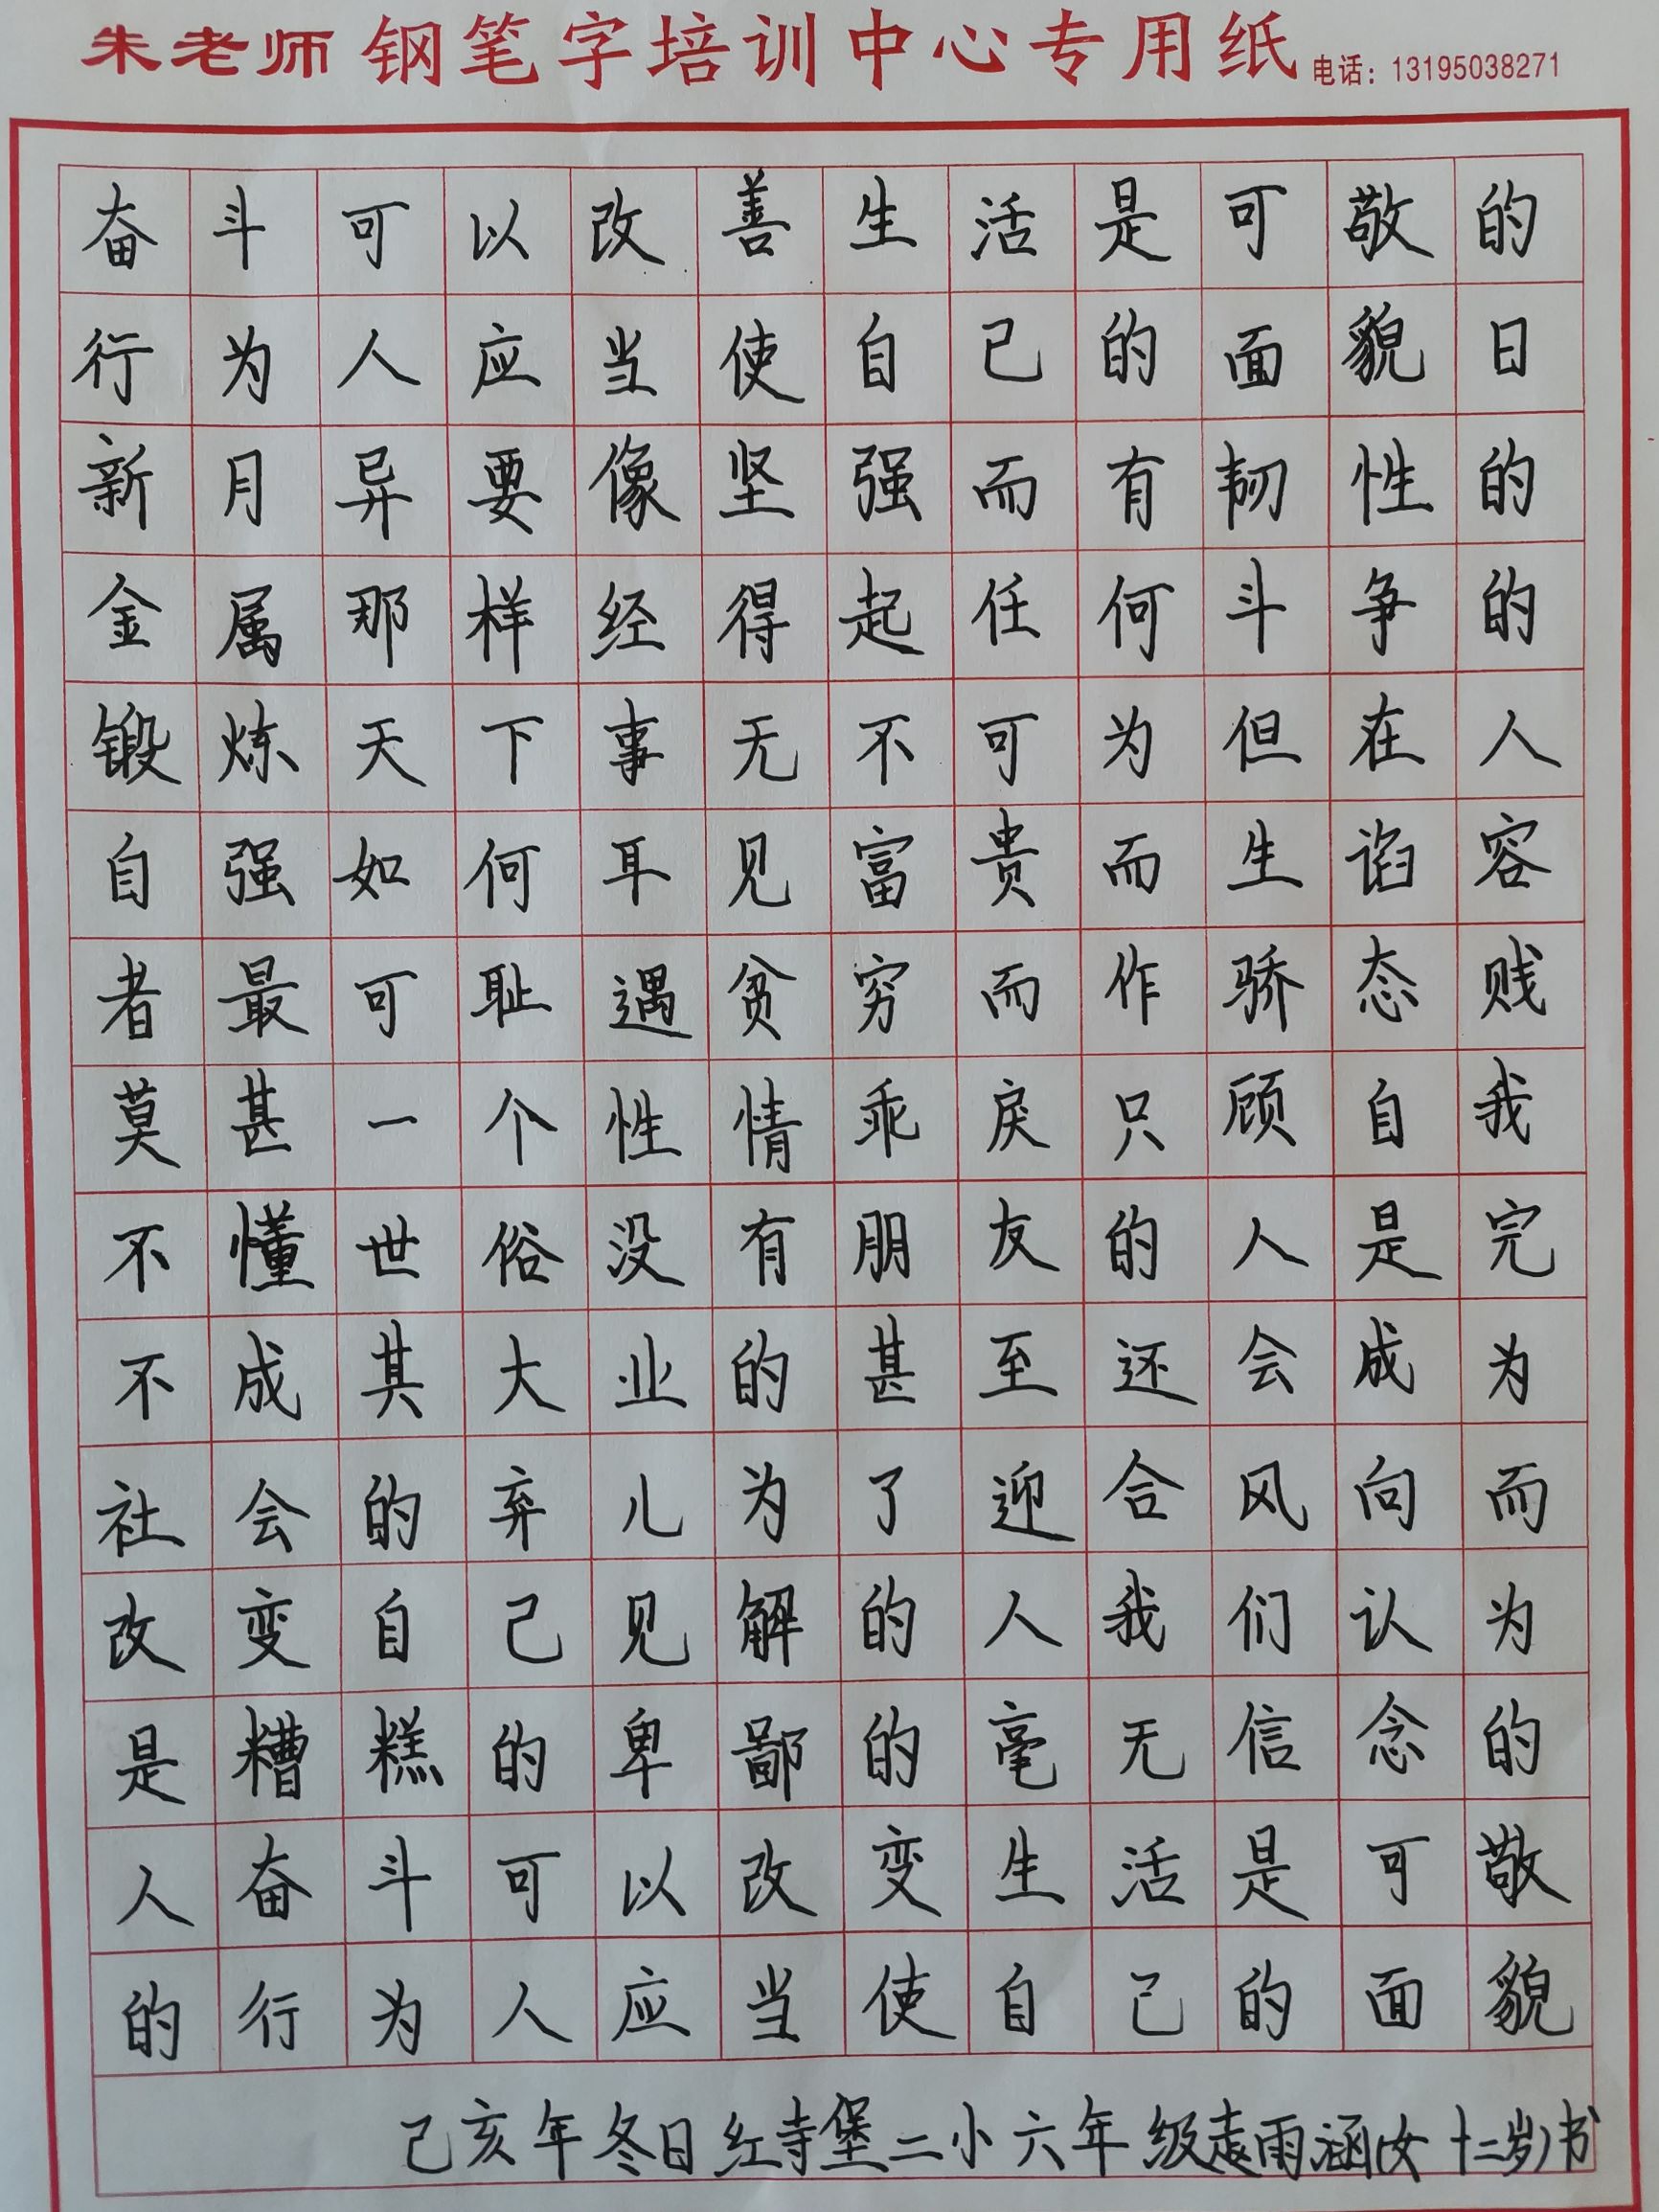 朱老师 钢笔字培训中心专用纸 电话：13195038271
奋斗可以改善生活是可敬的
行为人应当使自己的面貌日
新月异要像坚强而有韧性的
金属那样经得起任何斗争的
锻炼天下事无不可为但在人
自强如何耳见富贵而生谄容
者最可耻遇贫穷而作骄态贱
莫甚一个性情乖戾只顾自我
不懂世俗没有朋友的人是完
不成其大业的甚至还会成为
社会的弃儿为了迎合风向而
改变自己见解的人我们认为
是糟糕的卑鄙的毫无信念的
人奋斗可以改变生活是可敬
的行为人应当使自己的面貌
己亥年冬日红寺堡二小六年级袁雨涵(女十二岁)书